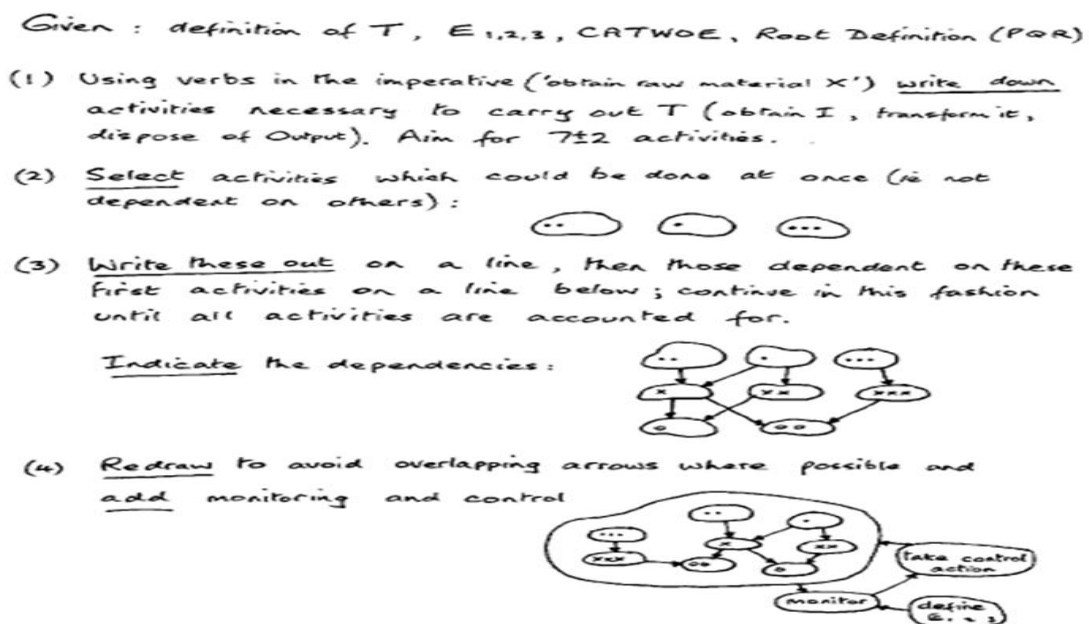 Given : definition of T, E 1,2,3, CATWOE, Root Definition (PQR)
(1) Using verbs in the imperative ('obtain raw material X') write down
activities necessary to carry out T (obtain I, transform it,
dispose of Output). Aim for 7±2 activities.
(2) Select activities which could be done at once (ie not
dependent on others) :
.. . ...
(3) Write these out on a line, then those dependent on these
first activities on a line below; continue in this fashion
until all activities are accounted for.
Indicate the dependencies:
.. . ...
x xx xxx
o oo
(4) Redraw to avoid overlapping arrows where possible and
add monitoring and control
.. .
...
x xx
xxx oo o
take control
action
monitor
define
E1, 2, 3